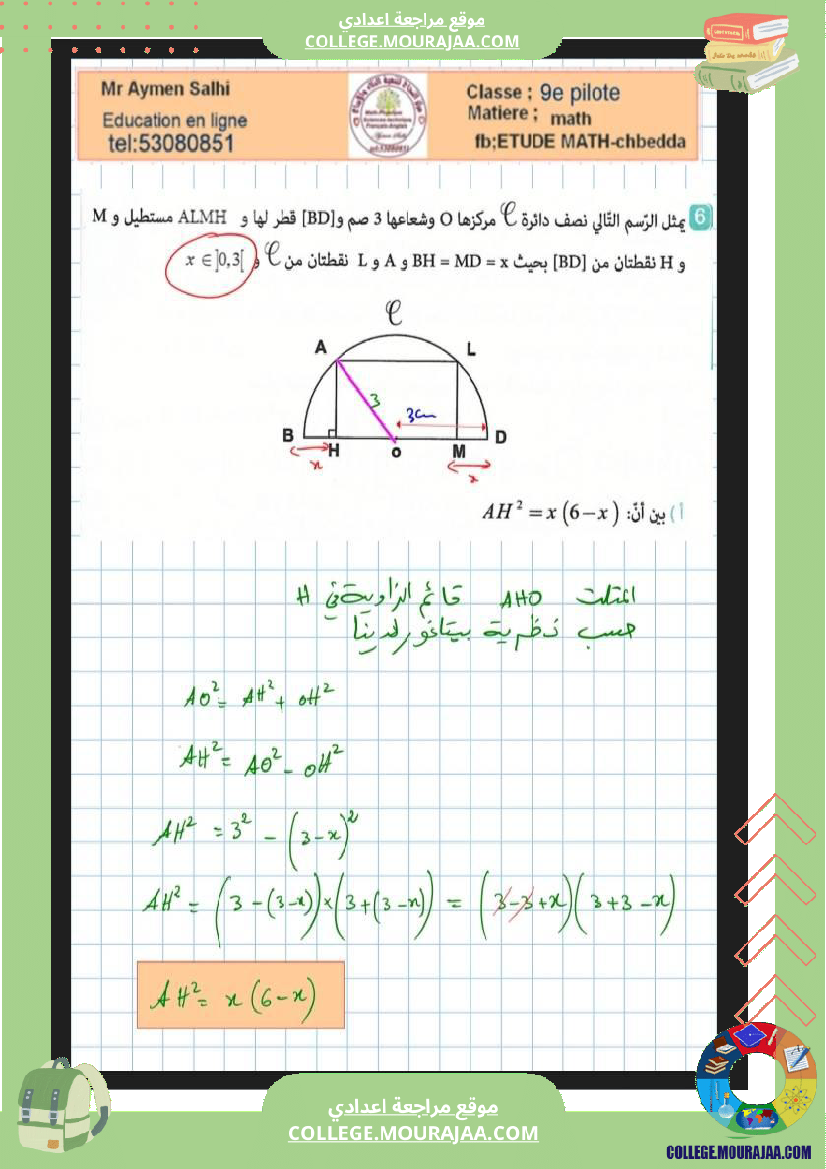 موقع مراجعة اعدادي
COLLEGE.MOURAJAA.COM
Mr Aymen Salhi
Education en ligne
tel:53080851
Classe ; 9e pilote
Matiere ; math
fb;ETUDE MATH-chbedda
6 يمثل الرّسم التّالي نصف دائرة 𝒞 مركزها O وشعاعها 3 صم و[BD] قطر لها و ALMH مستطيل و M
و H نقطتان من [BD] بحيث BH = MD = x و A و L نقطتان من 𝒞 و x ∈ ]0,3[
𝒞
A L
3 3cm
B H O M D
x x
أ) بين أنّ: AH² = x(6−x)
المثلث AHO قائم الزاوية في H
حسب نظرية بيتاغور لدينا
AO² = AH² + OH²
AH² = AO² − OH²
AH² = 3² − (3−x)²
AH² = (3−(3−x))×(3+(3−x)) = (3−3+x)(3+3−x)
AH² = x(6−x)
موقع مراجعة اعدادي
COLLEGE.MOURAJAA.COM
COLLEGE.MOURAJAA.COM